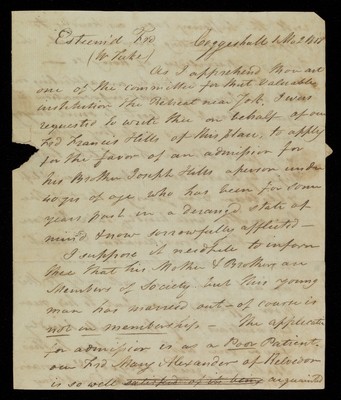 Esteem'd Frd Coggeshall
(W Tuke)
As I apprehend thou art
one of the committee for that valuable
institution the Retreat near York, I was
requested to write thee on behalf of our
Frd Francis Hills of this place, to apply
for the favor of an admission for
his Brother Joseph Hills a person under
40 yrs of age, who has been for some
years past in a derang'd state of
mind & now sorrowfully afflicted –
I suppose it needfule to inform
thee that his Mother & Brothers are
Members of Society but this young
man has married out – of course is
not in membership – The applicatn
for admission is as a Poor Patient,
our Frd Mary Alexander of
is so well satisfied of the being acquainted